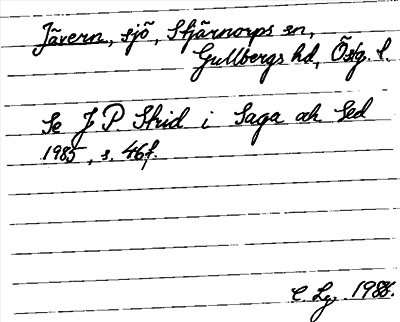 Jävern, sjö, Stjärnorps sn,
Gullbergs hd, Östg. l.
Se J. P. Strid i Saga och Sed
1985, s. 46f.
C. Lg. 1988.